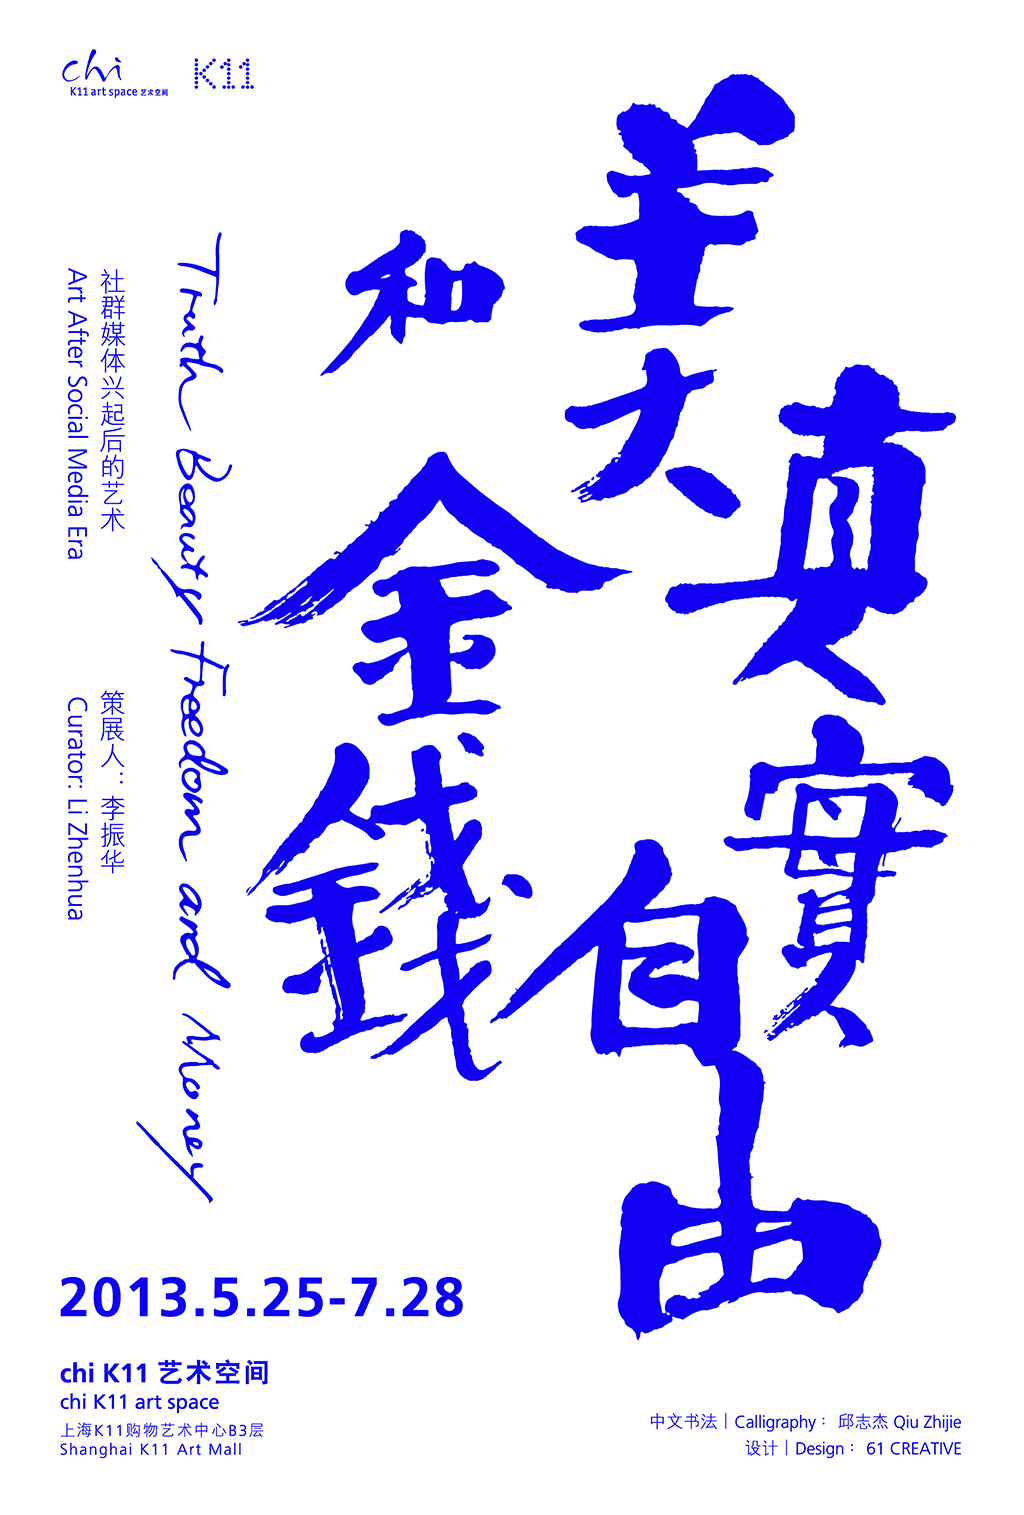 chi
K11 art space 艺术空间
K11
真實
美
自由
和
金錢
Truth Beauty Freedom and Money
社群媒体兴起后的艺术
Art After Social Media Era
策展人：李振华
Curator: Li Zhenhua
2013.5.25-7.28
chi K11 艺术空间
chi K11 art space
上海K11购物艺术中心B3层
Shanghai K11 Art Mall
中文书法｜Calligraphy： 邱志杰 Qiu Zhijie
设计｜Design： 61 CREATIVE